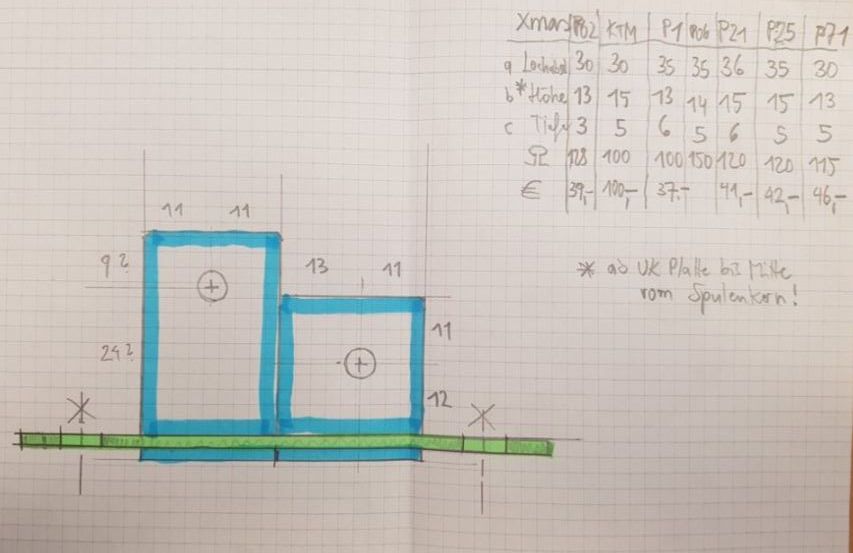 Xmas P82 KTM P1 P06 P21 P25 P71
a Lochabst 30 30 35 35 36 35 30
b* Höhe 13 15 13 14 15 15 13
c Tiefe 3 5 6 5 6 5 5
Ω 128 100 100 150 120 120 115
€ 39,- 100,- 37,- 41,- 42,- 46,-
* ab UK Platte bis Mitte
vom Spulenkern!
11 11
9? 13 11
24? 11
12